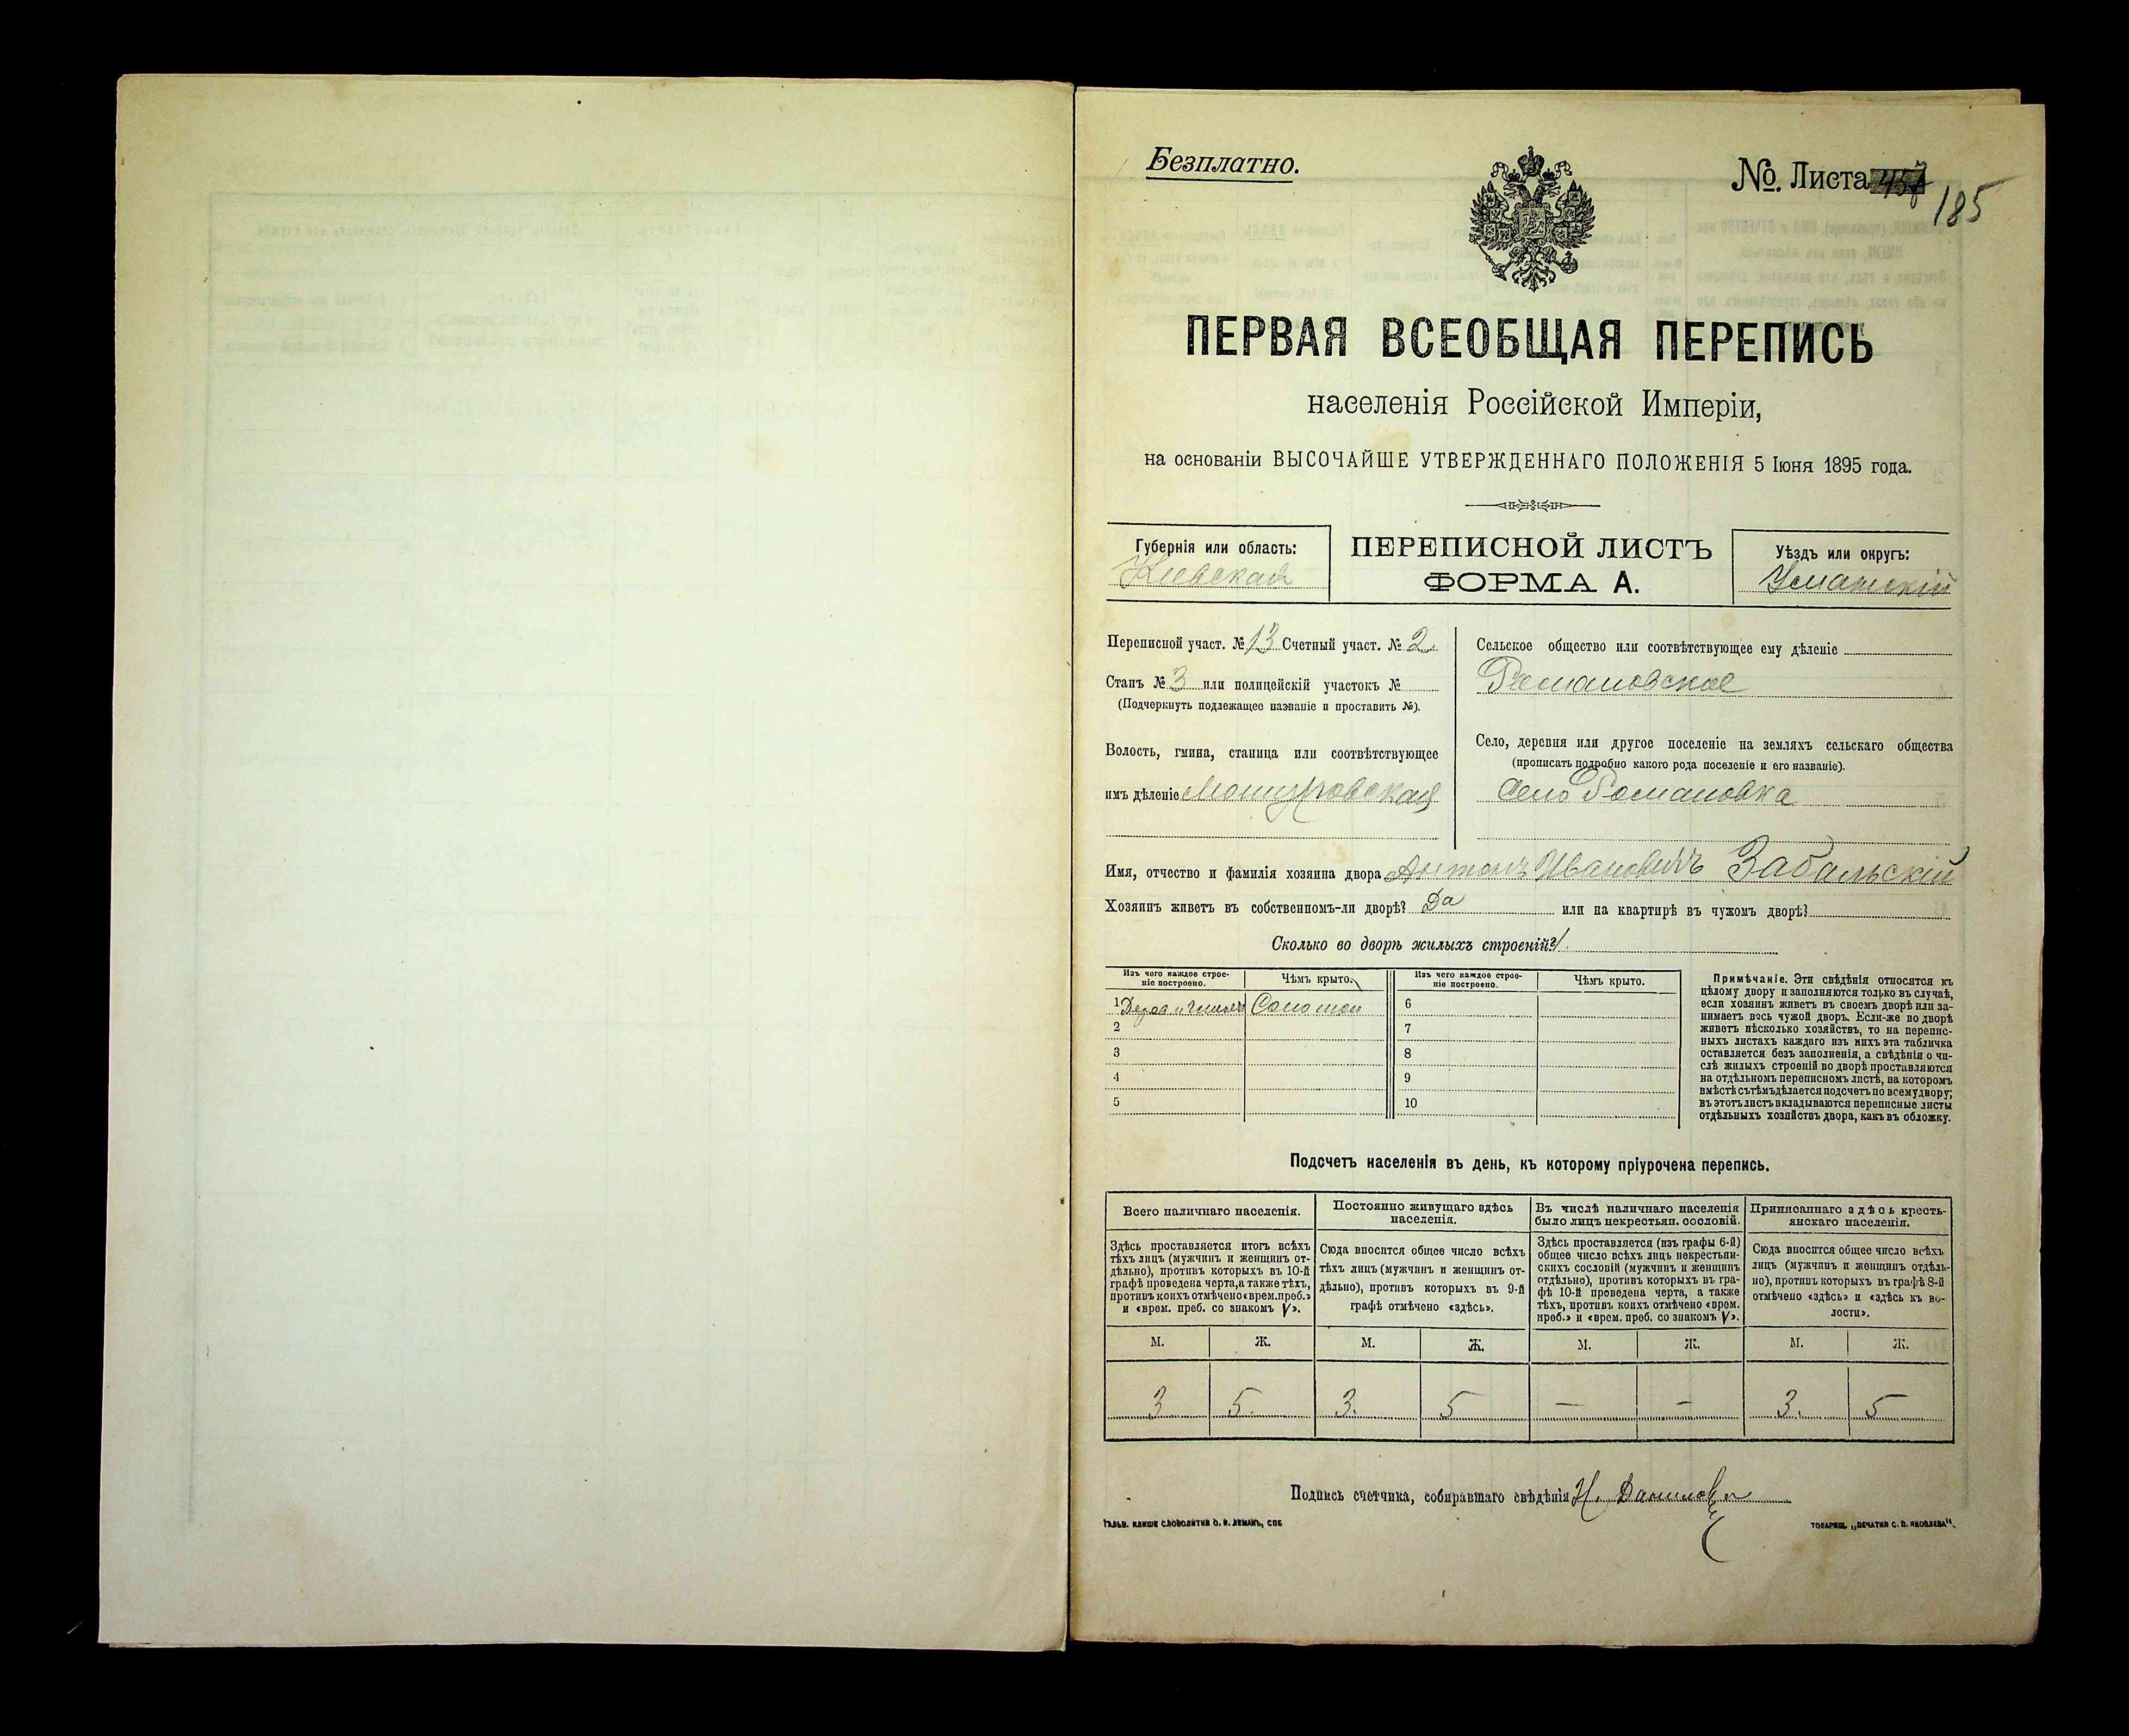 Безплатно.
№. Листа 185
ПЕРВАЯ ВСЕОБЩАЯ ПЕРЕПИСЬ
населенія Россійской Имперіи,
на основаніи ВЫСОЧАЙШЕ УТВЕРЖДЕННАГО ПОЛОЖЕНІЯ 5 Іюня 1895 года.
Губернія или область:
Кіевская
ПЕРЕПИСНОЙ ЛИСТЪ
ФОРМА А.
Уѣздъ или округъ:
Уманскій
Переписной участ. № 13 Счетный участ. № 2
Станъ № 3 или полицейскій участокъ №
(Подчеркнуть подлежащее названіе и проставить №).
Волость, гмина, станица или соотвѣтствующее
имъ дѣленіе
Сельское общество или соотвѣтствующее ему дѣленіе
Романовское
Село, деревня или другое поселеніе на земляхъ сельскаго общества
(прописать подробно какого рода поселеніе и его названіе).
Село Романовка
Имя, отчество и фамилія хозяина двора Антонъ Ивановичъ Забальскій
Хозяинъ живетъ въ собственномъ-ли дворѣ? Да или на квартирѣ въ чужомъ дворѣ?
Сколько во дворѣ жилыхъ строеній? 1
Изъ чего каждое строе-
ніе построено.
Чѣмъ крыто.
Изъ чего каждое строе-
ніе построено.
Чѣмъ крыто.
1 Дерев и Соломой 6
2 7
3 8
4 9
5 10
Примѣчаніе. Эти свѣдѣнія относятся къ
цѣлому двору и заполняются только въ случаѣ,
если хозяинъ живетъ въ своемъ дворѣ или за-
нимаетъ весь чужой дворъ. Если-же во дворѣ
живетъ нѣсколько хозяйствъ, то на перепис-
ныхъ листахъ каждаго изъ нихъ эта табличка
оставляется безъ заполненія, а свѣдѣнія о чи-
слѣ жилыхъ строеній во дворѣ проставляются
на отдѣльномъ переписномъ листѣ, на которомъ
вмѣстѣ съ тѣмъ дѣлается подсчетъ по всему двору;
въ этотъ листъ вкладываются переписные листы
отдѣльныхъ хозяйствъ двора, какъ въ обложку.
Подсчетъ населенія въ день, къ которому пріурочена перепись.
Всего наличнаго населенія.
Здѣсь проставляется итогъ всѣхъ
тѣхъ лицъ (мужчинъ и женщинъ от-
дѣльно), противъ которыхъ въ 10-й
графѣ проведена черта, а также тѣхъ,
противъ коихъ отмѣчено «врем. преб.»
и «врем. преб. со знакомъ V».
Постоянно живущаго здѣсь
населенія.
Сюда вносится общее число всѣхъ
тѣхъ лицъ (мужчинъ и женщинъ от-
дѣльно), противъ которыхъ въ 9-й
графѣ отмѣчено «здѣсь».
Въ числѣ наличнаго населенія
было лицъ некрестьян. сословій.
Здѣсь проставляется (изъ графы 6-й)
общее число всѣхъ лицъ некрестьян-
скихъ сословій (мужчинъ и женщинъ
отдѣльно), противъ которыхъ въ гра-
фѣ 10-й проведена черта, а также
тѣхъ, противъ коихъ отмѣчено «врем.
преб.» и «врем. преб. со знакомъ V».
Приписаннаго здѣсь кресть-
янскаго населенія.
Сюда вносится общее число всѣхъ
лицъ (мужчинъ и женщинъ отдѣль-
но), противъ которыхъ въ графѣ 8-й
отмѣчено «здѣсь» и «здѣсь къ во-
лости».
М. Ж. М. Ж. М. Ж. М. Ж.
3 5. 3. 5 — — 3. 5
Подпись счетчика, собиравшаго свѣдѣнія Н.
ГАЛЬВ. КЛИШЕ СЛОВОЛИТНИ О. И. ЛЕМАНЪ, СПБ
ТОВАРИЩ. „ПЕЧАТНЯ С. П. ЯКОВЛЕВА“.